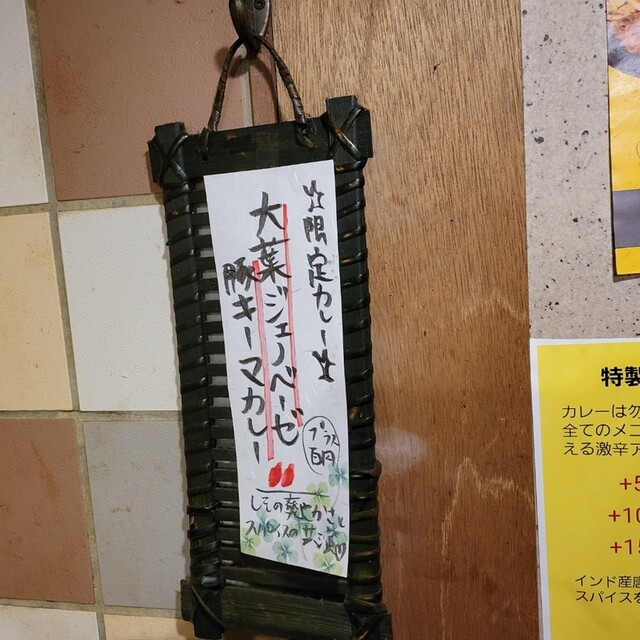 限定カレー
大葉ジェノベーゼ
豚キーマカレー
プラス
百円
しその爽やかさと
スパイスの
特製
カレーは勿
全てのメニ
える激辛ア
+5
+10
+15
インド産唐
スパイスを